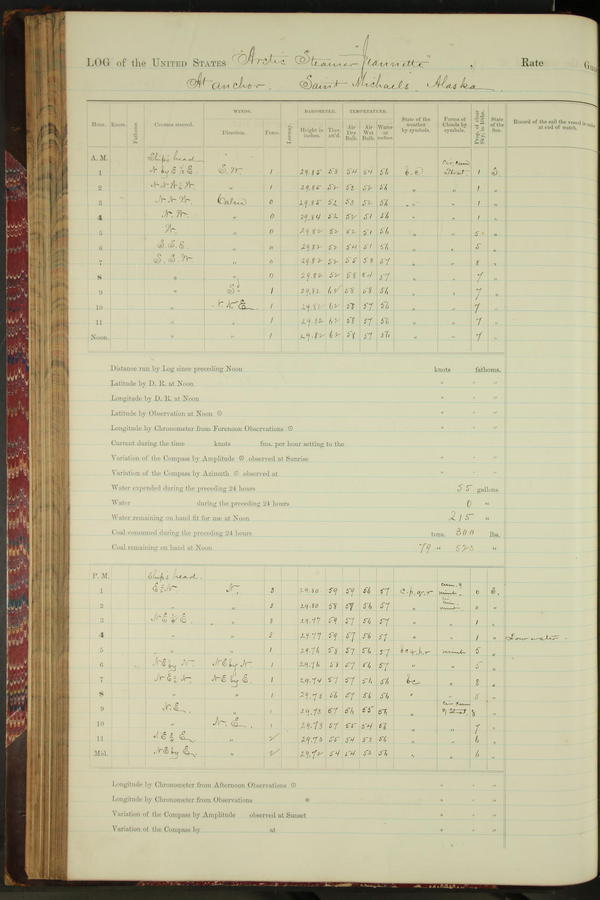 LOG of the UNITED STATES Arctic Steamer "Jeannette", Rate
At anchor. Saint Michaels, Alaska
WINDS. BAROMETER. TEMPERATURE.
Hour. Knots. Fathoms. Courses steered. Direction. Force. Leeway. Height in inches. Ther. att'd. Air Dry Bulb. Air Wet Bulb. Water at surface. State of the weather by symbols. Forms of Clouds by symbols. Prop. of clear Sky, in 10ths. State of the Sea. Record of the sail the vessel is under at end of watch.
A. M. Ship's head
1 N by E ½ E. S.W. 1 29.85 53 54 54 56 Strat. 1 S.
2 " 1 29.85 52 53 52 56 " " 1 "
3 N N W. Calm 0 29.85 52 53 52 56 " " 1 "
4 N W. " 0 29.84 52 52 51 56 " " 1 "
5 W. " 0 29.82 52 52 51 56 " " 5 "
6 S.S.E. " 0 29.82 52 54 51 56 " " 5 "
7 S.S.W. " 0 29.82 52 55 53 57 " " 8 "
8 " " 0 29.82 52 58 54 57 " " 7 "
9 " 1 29.82 62 58 58 56 " " 7 "
10 " N N E. 1 29.82 62 58 57 56 " " 7 "
11 " " 1 29.82 62 58 57 56 " " 7 "
Noon. " " 1 29.82 62 58 57 56 " " 7 "
Distance run by Log since preceding Noon knots fathoms.
Latitude by D. R. at Noon ° ' "
Longitude by D. R. at Noon ° ' "
Latitude by Observation at Noon ☉ ° ' "
Longitude by Chronometer from Forenoon Observations ☉ ° ' "
Current during the time knots fms. per hour setting to the
Variation of the Compass by Amplitude ☉ observed at Sunrise ° ' "
Variation of the Compass by Azimuth ☉ observed at ° ' "
Water expended during the preceding 24 hours 55 gallons
Water during the preceding 24 hours 0 "
Water remaining on hand fit for use at Noon 215 "
Coal consumed during the preceding 24 hours tons. 300 lbs.
Coal remaining on hand at Noon 79 " 523 "
P. M. Ship's head.
1 E ½ N. N. 3 29.80 59 59 56 57 c.p.q.r 0 S.
2 " " 3 29.80 58 58 56 57 " 0 "
3 N E ½ E. " 3 29.77 59 57 56 57 " " 1 "
4 " " 3 29.77 59 57 56 57 " " 1 " Low water.
5 " " 1 29.76 58 57 56 57 5 "
6 N E by N. N E by N. 1 29.76 58 57 56 57 " " 5 "
7 N E ½ N. N E by E. 1 29.74 57 57 56 56 bc " 8 "
8 " " 1 29.73 56 57 56 56 " " 8 "
9 N.E. " 1 29.73 57 56 55 56 " & Strat. 8 "
10 " N. E. 1 29.73 57 55 54 56 " " 7 "
11 N E ½ E. " 2 29.73 55 54 53 56 " " 6 "
Mid. N E by E. " 2 29.72 54 54 53 56 " " 6 "
Longitude by Chronometer from Afternoon Observations ☉ ° ' "
Longitude by Chronometer from Observations * ° ' "
Variation of the Compass by Amplitude observed at Sunset ° ' "
Variation of the Compass by at ° ' "